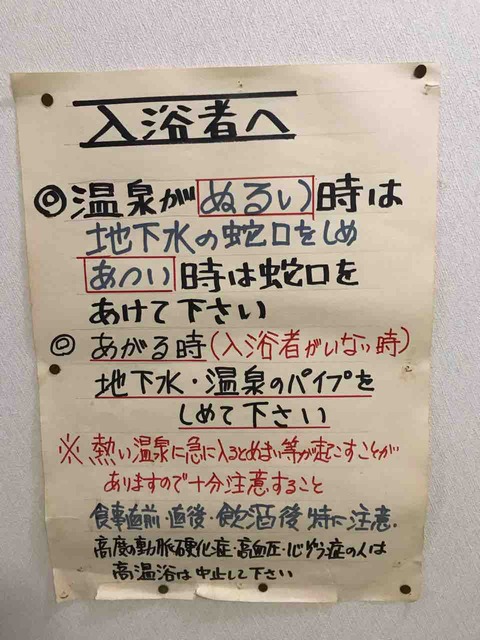 入浴者へ
◎温泉がぬるい時は
地下水の蛇口をしめ
あつい時は蛇口を
あけて下さい
◎あがる時(入浴者がいない時)
地下水・温泉のパイプを
しめて下さい
※熱い温泉に急に入るとめまい等が起こすことが
ありますので十分注意すること
食事直前・直後・飲酒後特に注意.
高度の動脈硬化症・高血圧・心ぞう症の人は
高温浴は中止して下さい